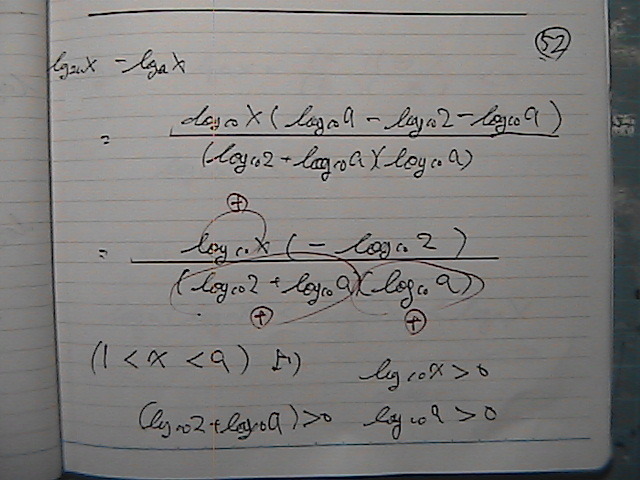 52
log₂ₐx - logₐx
= log₁₀x(log₁₀a - log₁₀2 - log₁₀a) / (log₁₀2 + log₁₀a)(log₁₀a)
⊕
= log₁₀x(- log₁₀2) / (log₁₀2 + log₁₀a)(log₁₀a)
⊕ ⊕
(1 < x < a) より log₁₀x > 0
(log₁₀2 + log₁₀a) > 0 log₁₀a > 0